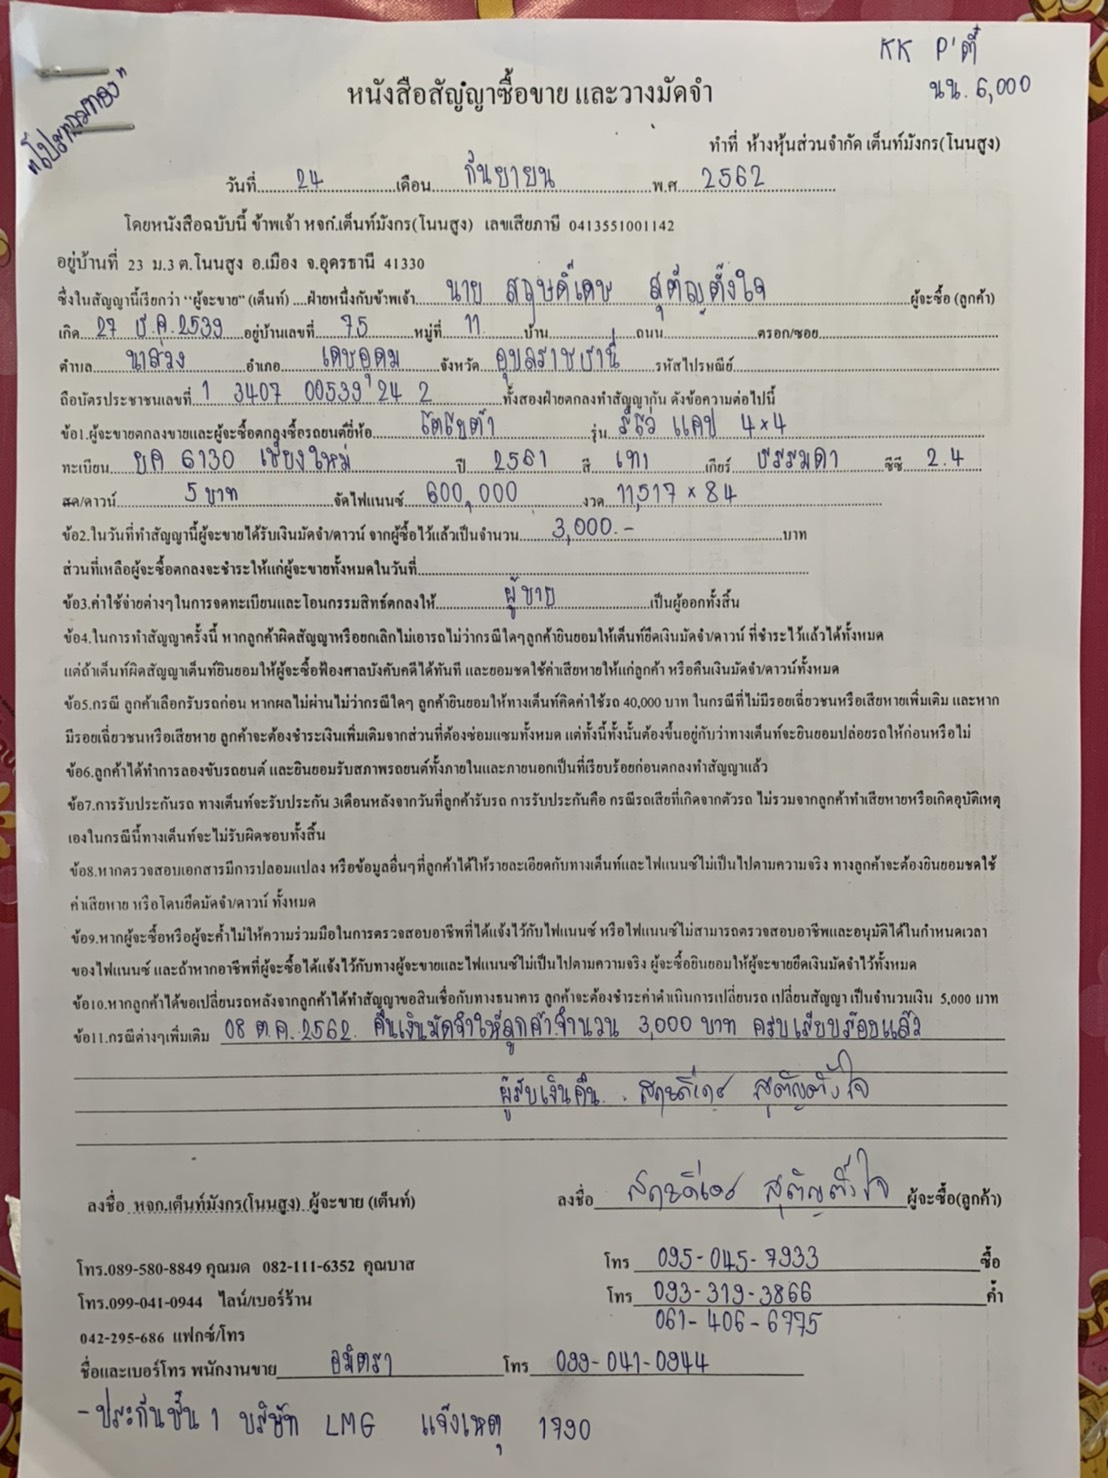 KK P'ตี๋
นน. 6,000
"โปรฯถมทอง"
หนังสือสัญญาซื้อขาย และวางมัดจำ
ทำที่ ห้างหุ้นส่วนจำกัด เต็นท์มังกร(โนนสูง)
วันที่ 24 เดือน กันยายน พ.ศ 2562
โดยหนังสือฉบับนี้ ข้าพเจ้า หจก.เต็นท์มังกร(โนนสูง) เลขเสียภาษี 0413551001142
อยู่บ้านที่ 23 ม.3 ต.โนนสูง อ.เมือง จ.อุดรธานี 41330
ซึ่งในสัญญานี้เรียกว่า "ผู้จะขาย" (เต็นท์) ฝ่ายหนึ่งกับข้าพเจ้า นาย สฤษดิ์เดช สุตัญตั้งใจ ผู้จะซื้อ (ลูกค้า)
เกิด 27 ธ.ค.2539 อยู่บ้านเลขที่ 75 หมู่ที่ 11 บ้าน ถนน ตรอก/ซอย
ตำบล นาส่วง อำเภอ เดชอุดม จังหวัด อุบลราชธานี รหัสไปรษณีย์
ถือบัตรประชาชนเลขที่ 1 3407 00539 24 2 ทั้งสองฝ่ายตกลงทำสัญญากัน ดังข้อความต่อไปนี้
ข้อ1.ผู้จะขายตกลงขายและผู้จะซื้อตกลงซื้อรถยนต์ยี่ห้อ โตโยต้า รุ่น รีโว่ แคป 4x4
ทะเบียน ยค 6130 เชียงใหม่ ปี 2561 สี เทา เกียร์ ธรรมดา ซีซี 2.4
สด/ดาวน์ 5 บาท จัดไฟแนนซ์ 600,000 งวด 11,517 x 84
ข้อ2.ในวันที่ทำสัญญานี้ผู้จะขายได้รับเงินมัดจำ/ดาวน์ จากผู้ซื้อไว้แล้วเป็นจำนวน 3,000.- บาท
ส่วนที่เหลือผู้จะซื้อตกลงจะชำระให้แก่ผู้จะขายทั้งหมดในวันที่
ข้อ3.ค่าใช้จ่ายต่างๆในการจดทะเบียนและโอนกรรมสิทธ์ตกลงให้ ผู้ขาย เป็นผู้ออกทั้งสิ้น
ข้อ4.ในการทำสัญญาครั้งนี้ หากลูกค้าผิดสัญญาหรือยกเลิกไม่เอารถไม่ว่ากรณีใดๆลูกค้ายินยอมให้เต็นท์ยึดเงินมัดจำ/ดาวน์ ที่ชำระไว้แล้วได้ทั้งหมด
แต่ถ้าเต็นท์ผิดสัญญาเต็นท์ยินยอมให้ผู้จะซื้อฟ้องศาลบังคับคดีได้ทันที และยอมชดใช้ค่าเสียหายให้แก่ลูกค้า หรือคืนเงินมัดจำ/ดาวน์ทั้งหมด
ข้อ5.กรณี ลูกค้าเลือกรับรถก่อน หากผลไม่ผ่านไม่ว่ากรณีใดๆ ลูกค้ายินยอมให้ทางเต็นท์คิดค่าใช้รถ 40,000 บาท ในกรณีที่ไม่มีรอยเฉี่ยวชนหรือเสียหายเพิ่มเติม และหาก
มีรอยเฉี่ยวชนหรือเสียหาย ลูกค้าจะต้องชำระเงินเพิ่มเติมจากส่วนที่ต้องซ่อมแซมทั้งหมด แต่ทั้งนี้ทั้งนั้นต้องขึ้นอยู่กับว่าทางเต็นท์จะยินยอมปล่อยรถให้ก่อนหรือไม่
ข้อ6.ลูกค้าได้ทำการลองขับรถยนต์ และยินยอมรับสภาพรถยนต์ทั้งภายในและภายนอกเป็นที่เรียบร้อยก่อนตกลงทำสัญญาแล้ว
ข้อ7.การรับประกันรถ ทางเต็นท์จะรับประกัน 3เดือนหลังจากวันที่ลูกค้ารับรถ การรับประกันคือ กรณีรถเสียที่เกิดจากตัวรถ ไม่รวมจากลูกค้าทำเสียหายหรือเกิดอุบัติเหตุ
เองในกรณีนี้ทางเต็นท์จะไม่รับผิดชอบทั้งสิ้น
ข้อ8.หากตรวจสอบเอกสารมีการปลอมแปลง หรือข้อมูลอื่นๆที่ลูกค้าได้ให้รายละเอียดกับทางเต็นท์และไฟแนนซ์ไม่เป็นไปตามความจริง ทางลูกค้าจะต้องยินยอมชดใช้
ค่าเสียหาย หรือโดนยึดมัดจำ/ดาวน์ ทั้งหมด
ข้อ9.หากผู้จะซื้อหรือผู้จะค้ำไม่ให้ความร่วมมือในการตรวจสอบอาชีพที่ได้แจ้งไว้กับไฟแนนซ์ หรือไฟแนนซ์ไม่สามารถตรวจสอบอาชีพและอนุมัติได้ในกำหนดเวลา
ของไฟแนนซ์ และถ้าหากอาชีพที่ผู้จะซื้อได้แจ้งไว้กับทางผู้จะขายและไฟแนนซ์ไม่เป็นไปตามความจริง ผู้จะซื้อยินยอมให้ผู้จะขายยึดเงินมัดจำไว้ทั้งหมด
ข้อ10.หากลูกค้าได้ขอเปลี่ยนรถหลังจากลูกค้าได้ทำสัญญาขอสินเชื่อกับทางธนาคาร ลูกค้าจะต้องชำระค่าดำเนินการเปลี่ยนรถ เปลี่ยนสัญญา เป็นจำนวนเงิน 5,000 บาท
ข้อ11.กรณีต่างๆเพิ่มเติม 08 ต.ค. 2562. คืนเงินมัดจำให้ลูกค้าจำนวน 3,000 บาท ครบเรียบร้อยแล้ว
ผู้รับเงินคืน.. สฤษดิ์เดช สุตัญตั้งใจ
ลงชื่อ หจก.เต็นท์มังกร(โนนสูง) ผู้จะขาย (เต็นท์) ลงชื่อ สฤษดิ์เดช สุตัญตั้งใจ ผู้จะซื้อ(ลูกค้า)
โทร.089-580-8849 คุณมด 082-111-6352 คุณบาส โทร 095-045-7933 ซื้อ
โทร.099-041-0944 ไลน์/เบอร์ร้าน โทร 093-319-3866 ค้ำ
061-406-6775
042-295-686 แฟกซ์/โทร
ชื่อและเบอร์โทร พนักงานขาย อมิตรา โทร 099-041-0944
- ประกันชั้น 1 บริษัท LMG แจ้งเหตุ 1790